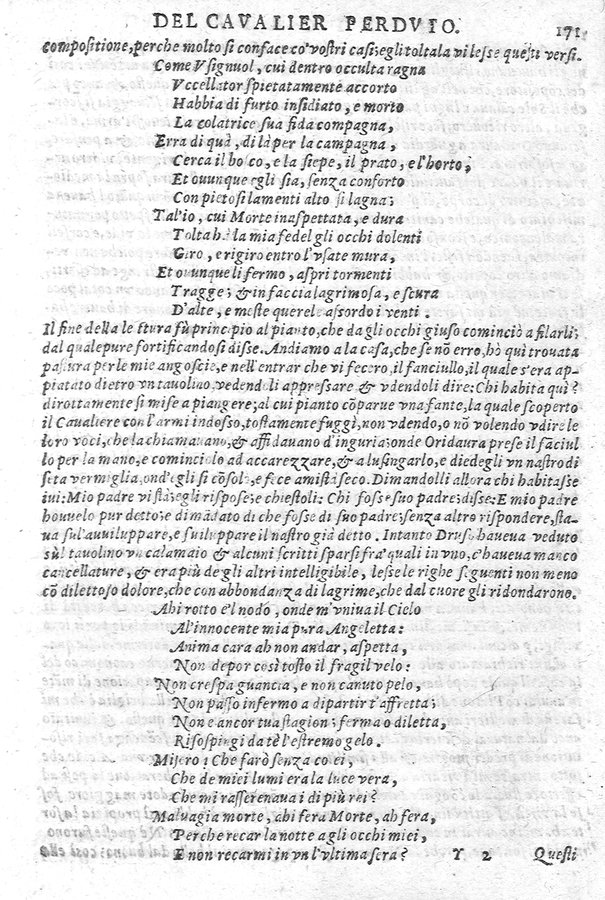 DEL CAVALIER PERDVTO. 171
compositione, perche molto si conface co' vostri casi; egli toltala vi lesse questi versi.
Come Vsignuol, cui dentro occulta ragna
Vccellator spietatamente accorto
Habbia di furto insidiato, e morto
La colatrice sua fida compagna,
Erra di quà, di là per la campagna,
Cerca il bosco, e la siepe, il prato, e l'horto,
Et ouunque egli sia, senza conforto
Con pietosi lamenti alto si lagna;
Tal'io, cui Morte inaspettata, e dura
Tolta hà la mia fedel gli occhi dolenti
Giro, e rigiro entro l'vsate mura,
Et ouunque li fermo, aspri tormenti
Tragge; & in faccia lagrimosa, e scura
D'alte, e meste querele assordo i venti.
Il fine della lettura fù principio al pianto, che da gli occhi giuso cominciò a filarli;
dal quale pure fortificandosi disse. Andiamo a la casa, che se nō erro, hò quì trouata
pastura per le mie angoscie, e nell'entrar che vi fecero, il fanciullo, il quale s'era ap-
piatato dietro vn tauolino, vedendoli appressare & vdendoli dire: Chi habita quì?
dirottamente si mise a piangere; al cui pianto cōparue vna fante, la quale scoperto
il Caualiere con l'armi indosso, tostamente fuggì, non vdendo, o nō volendo vdire le
loro voci, che la chiamauano, & affidauano d'inguria; onde Oridaura prese il fāciul
lo per la mano, e cominciolo ad accarezzare, & a lusingarlo, e diedegli vn nastro di
seta vermiglia, ond'egli si cōsolò, e fece amistà seco. Dimandolli allora chi habitasse
iui: Mio padre vi stà; egli rispose; e chiestoli: Chi fosse suo padre; disse: E mio padre
houuelo pur detto; e di mādato di che fosse di suo padre; senza altro rispondere, sta-
ua sul'auuiluppare, e suiluppare il nastro già detto. Intanto Druso haueua veduto
sùl tauolino vn calamaio & alcuni scritti sparsi frà quali in vno, c'haueua manco
cancellature, & era più de gli altri intelligibile, lesse le righe seguenti non meno
cō dilettoso dolore, che con abbondanza di lagrime, che dal cuore gli ridondarono.
Ahi rotto e'l nodo, onde m'vniua il Cielo
Al'innocente mia pura Angeletta:
Anima cara ah non andar, aspetta,
Non depor così tosto il fragil velo:
Non crespa guancia, e non canuto pelo,
Non passo infermo a dipartir t'affretta;
Non e ancor tua stagion; ferma o diletta,
Risospingi da tè l'estremo gelo.
Misero! Che farò senza colei,
Che de miei lumi era la luce vera,
Che mi rasserenaua i dì più rei?
Maluagia morte, ahi fera Morte, ah fera,
Perche recar la notte a gli occhi miei,
E non recarmi in vn l'vltima sera? Y 2 Questi